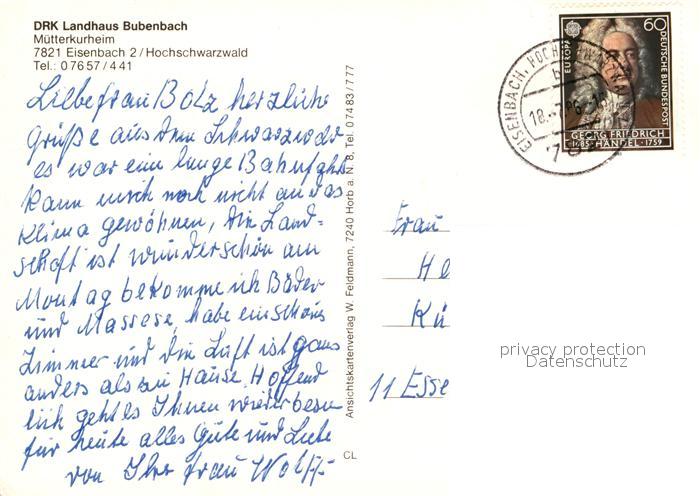 DRK Landhaus Bubenbach
Mütterkurheim
7821 Eisenbach 2 / Hochschwarzwald
Tel.: 0 76 57 / 4 41
Liebe Frau Bolz herzliche
Grüße aus dem Schwarzwald
es war eine lange Bahnfahrt
kann mich noch nicht an das
Klima gewöhnen, die Land-
schaft ist wunderschön am
Montag bekomme ich Bäder
und Massese, habe ein schöns
Zimmer und die Luft ist gans
anders als zu Hause. Hoffend
lich geht es Ihnen wieder besser
für heute alles Gute und Liebe
von Ihr Frau Wolff
Ansichtskartenverlag W. Feldmann, 7240 Horb a. N. 8, Tel. 07483/777
CL
EUROPA
60
DEUTSCHE BUNDESPOST
GEORG FRIEDRICH
1685 · HÄNDEL · 1759
EISENBACH, HOCHSCHWARZWALD
b
Frau
He
Kü
11 Esse
privacy protection
Datenschutz